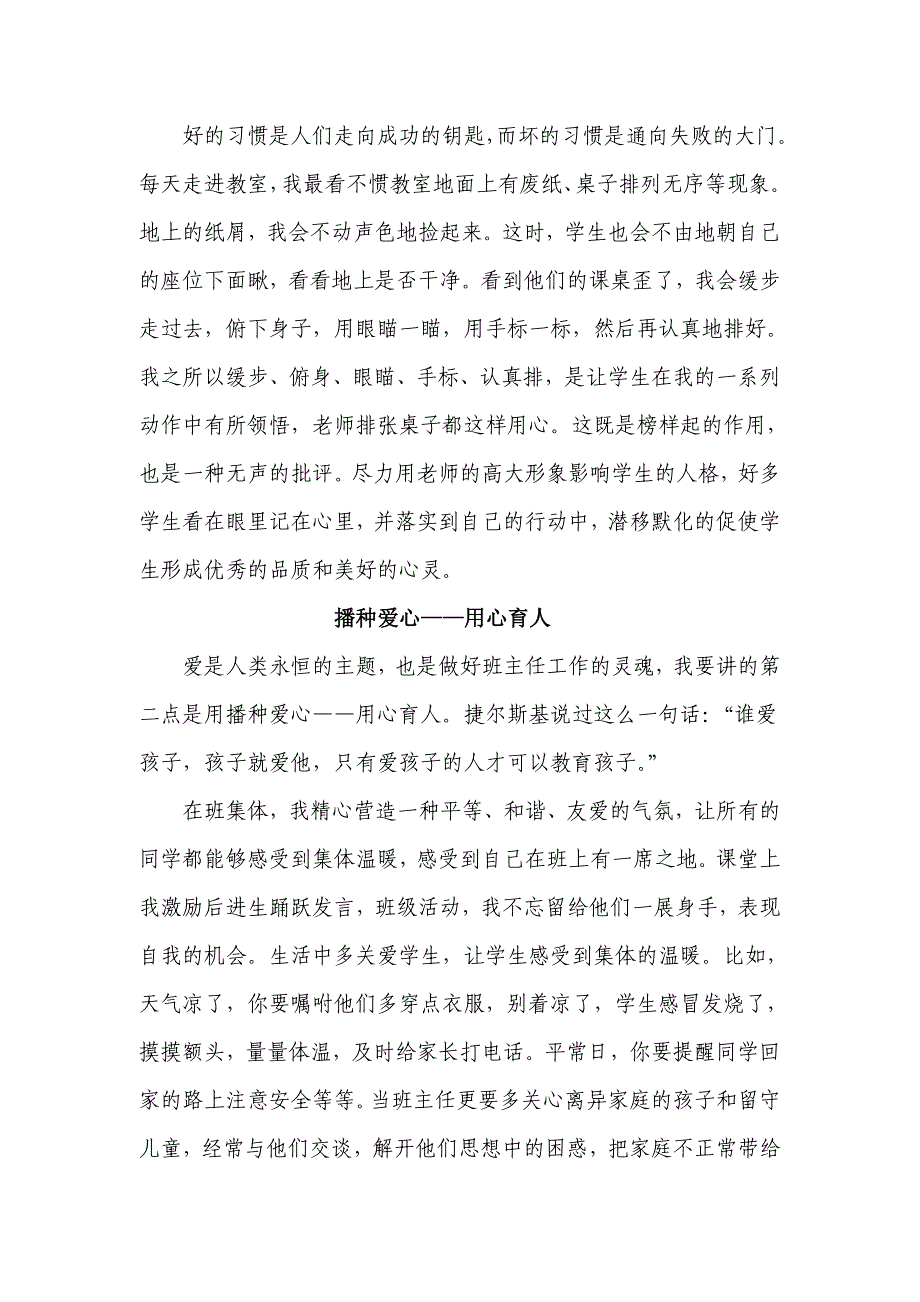 好的习惯是人们走向成功的钥匙，而坏的习惯是通向失败的大门。
每天走进教室，我最看不惯教室地面上有废纸、桌子排列无序等现象。
地上的纸屑，我会不动声色地捡起来。这时，学生也会不由地朝自己
的座位下面瞅，看看地上是否干净。看到他们的课桌歪了，我会缓步
走过去，俯下身子，用眼瞄一瞄，用手标一标，然后再认真地排好。
我之所以缓步、俯身、眼瞄、手标、认真排，是让学生在我的一系列
动作中有所领悟，老师排张桌子都这样用心。这既是榜样起的作用，
也是一种无声的批评。尽力用老师的高大形象影响学生的人格，好多
学生看在眼里记在心里，并落实到自己的行动中，潜移默化的促使学
生形成优秀的品质和美好的心灵。
播种爱心——用心育人
爱是人类永恒的主题，也是做好班主任工作的灵魂，我要讲的第
二点是用播种爱心——用心育人。捷尔斯基说过这么一句话：“谁爱
孩子，孩子就爱他，只有爱孩子的人才可以教育孩子。”
在班集体，我精心营造一种平等、和谐、友爱的气氛，让所有的
同学都能够感受到集体温暖，感受到自己在班上有一席之地。课堂上
我激励后进生踊跃发言，班级活动，我不忘留给他们一展身手，表现
自我的机会。生活中多关爱学生，让学生感受到集体的温暖。比如，
天气凉了，你要嘱咐他们多穿点衣服，别着凉了，学生感冒发烧了，
摸摸额头，量量体温，及时给家长打电话。平常日，你要提醒同学回
家的路上注意安全等等。当班主任更要多关心离异家庭的孩子和留守
儿童，经常与他们交谈，解开他们思想中的困惑，把家庭不正常带给